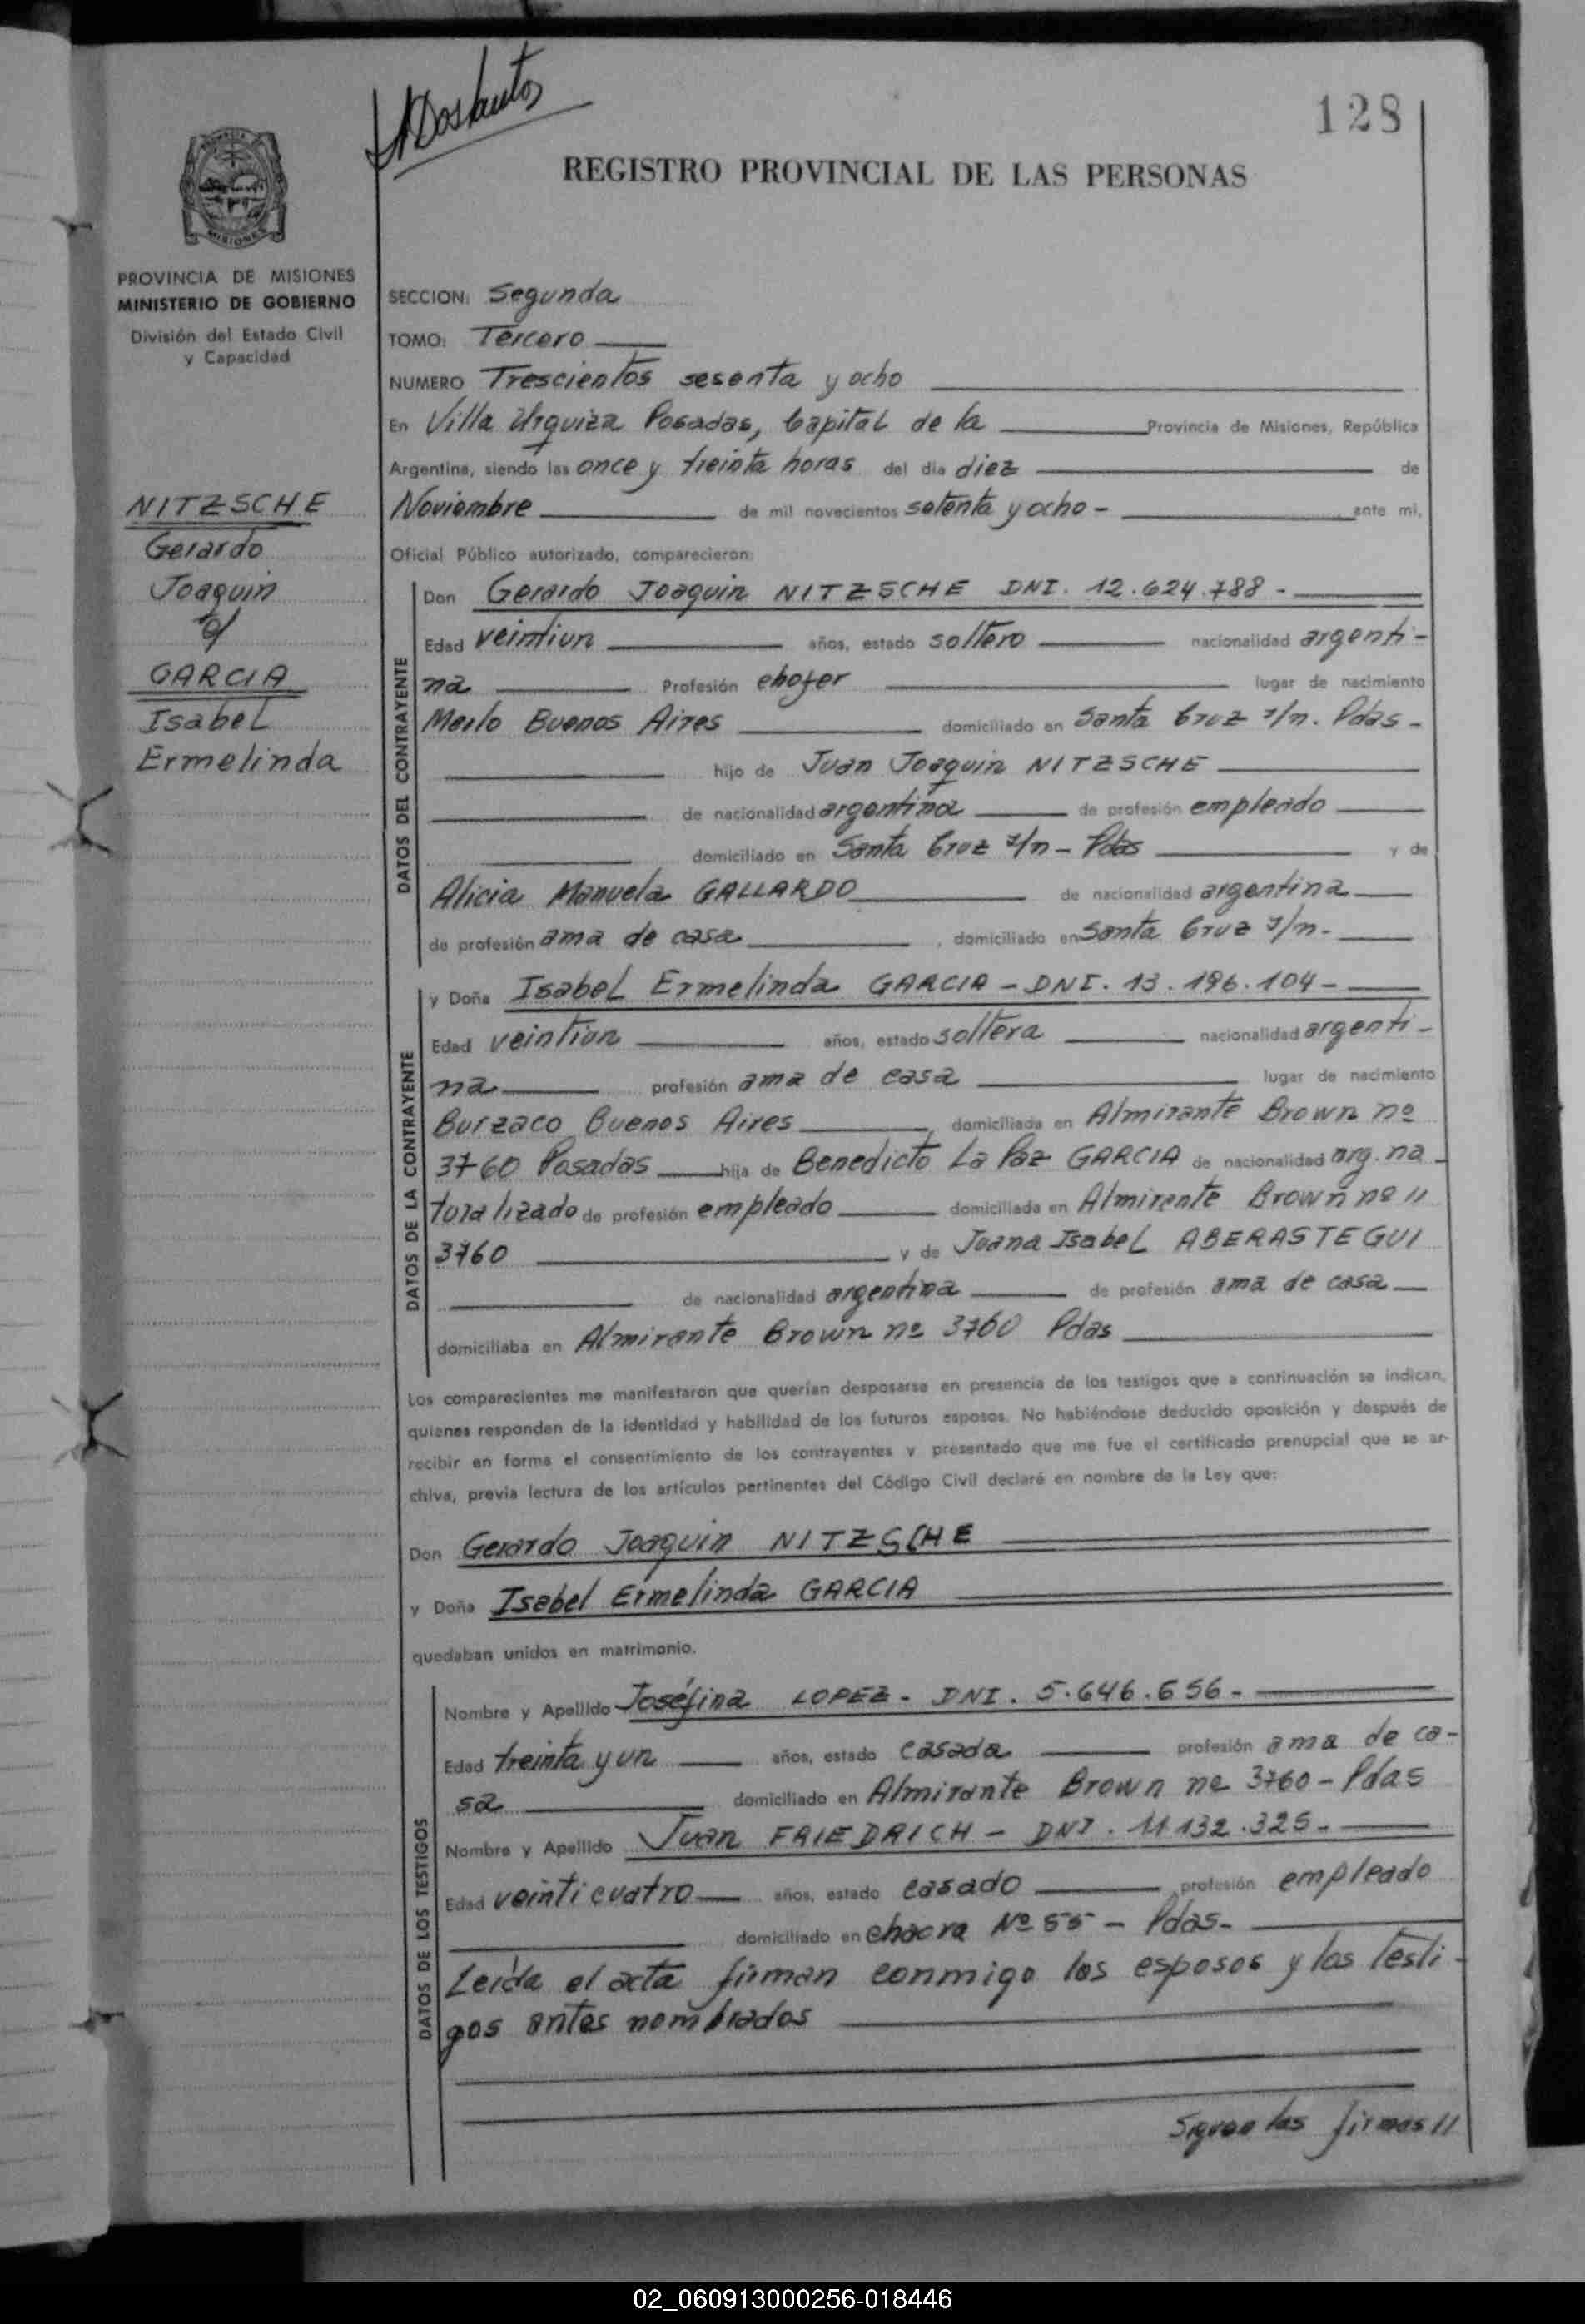 ADosSantos
128
REGISTRO PROVINCIAL DE LAS PERSONAS
MISIONES
PROVINCIA DE MISIONES
MINISTERIO DE GOBIERNO
División del Estado Civil
y Capacidad
NITZSCHE
Gerardo
Joaquin
y
GARCIA
Isabel
Ermelinda
SECCION: Segunda
TOMO: Tercero
NUMERO Trescientos sesenta y ocho
En Villa Urquiza Posadas, Capital de la Provincia de Misiones, República
Argentina, siendo las once y treinta horas del dia diez de
Noviembre de mil novecientos setenta y ocho - ante mi,
Oficial Público autorizado, comparecieron:
DATOS DEL CONTRAYENTE
Don Gerardo Joaquin NITZSCHE DNI. 12.624.788 -
Edad veintiun años, estado soltero nacionalidad argenti-
na Profesión chofer lugar de nacimiento
Merlo Buenos Aires domiciliado en Santa Cruz s/n. Pdas -
hijo de Juan Joaquin NITZSCHE
de nacionalidad argentina de profesión empleado
domiciliado en Santa Cruz s/n - Pdas y de
Alicia Manuela GALLARDO de nacionalidad argentina
de profesión ama de casa, domiciliado en Santa Cruz s/n -
DATOS DE LA CONTRAYENTE
y Doña Isabel Ermelinda GARCIA - DNI. 13.196.104 -
Edad veintiun años, estado soltera nacionalidad argenti-
na profesión ama de casa lugar de nacimiento
Burzaco Buenos Aires, domiciliada en Almirante Brown nº
3760 Posadas hija de Benedicto La Paz GARCIA de nacionalidad arg. na
turalizado de profesión empleado domiciliada en Almirante Brown nº //
3760 y de Juana Isabel ABERASTEGUI
de nacionalidad argentina de profesión ama de casa
domiciliaba en Almirante Brown nº 3760 Pdas
Los comparecientes me manifestaron que querían desposarse en presencia de los testigos que a continuación se indican,
quienes responden de la identidad y habilidad de los futuros esposos. No habiéndose deducido oposición y después de
recibir en forma el consentimiento de los contrayentes y presentado que me fue el certificado prenupcial que se ar-
chiva, previa lectura de los artículos pertinentes del Código Civil declaré en nombre de la Ley que:
Don Gerardo Joaquin NITZSCHE
y Doña Isabel Ermelinda GARCIA
quedaban unidos en matrimonio.
DATOS DE LOS TESTIGOS
Nombre y Apellido Joséfina LOPEZ - DNI. 5.646.656 -
Edad treinta y un años, estado casada profesión ama de ca-
sa domiciliado en Almirante Brown nº 3760 - Pdas
Nombre y Apellido Juan FRIEDRICH - DNI. 11.132.325 -
Edad veinticuatro años, estado casado profesión empleado
domiciliado en chacra Nº 55 - Pdas -
Leida el acta firman conmigo los esposos y los testi-
gos antes nombrados
Siguen las firmas //
02_060913000256-018446